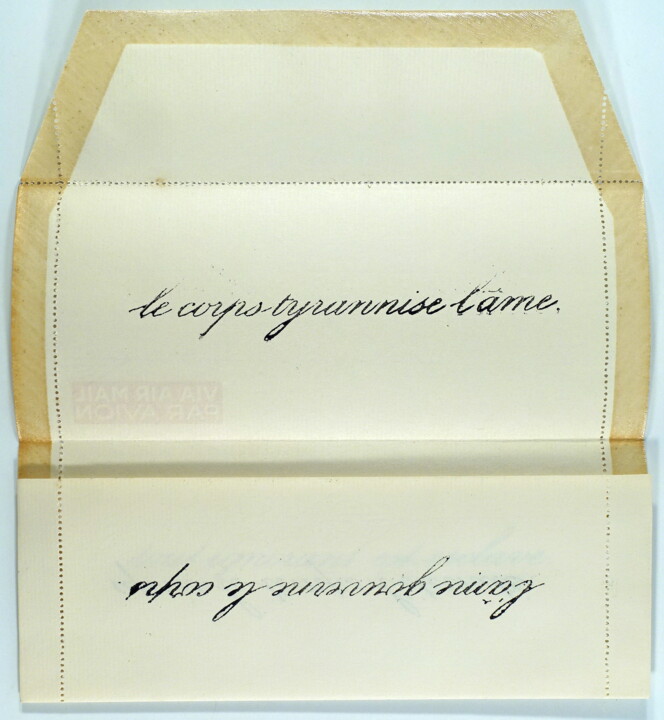 le corps tyrannise l'âme.
VIA AIR MAIL
PAR AVION
l'âme gouverne le corps